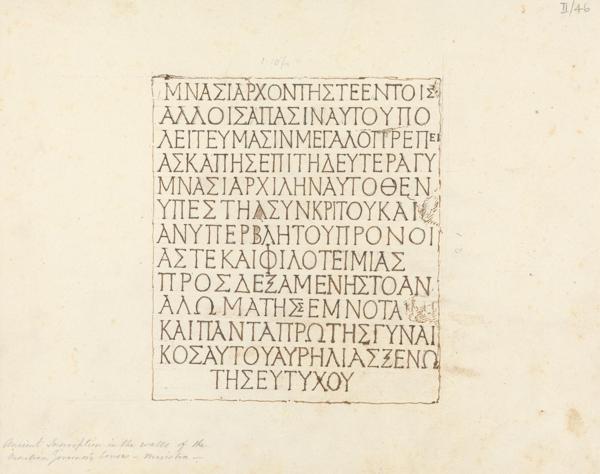 II/46
ΜΝΑΣΙΑΡΧΟΝΤΗΣΤΕΕΝΤΟΙΣ
ΑΛΛΟΙΣΑΠΑΣΙΝΑΥΤΟΥΠΟ
ΛΕΙΤΕΥΜΑΣΙΝΜΕΓΑΛΟΠΡΕΠΕΙ
ΑΣΚΑΠΗΣΕΠΙΤΗΔΕΥΤΕΡΑΓΥ
ΜΝΑΣΙΑΡΧΙΛΗΝΑΥΤΟΘΕΝ
ΥΠΕΣΤΗΑΣΥΝΚΡΙΤΟΥΚΑΙ
ΑΝΥΠΕΡΒΛΗΤΟΥΠΡΟΝΟΙ
ΑΣΤΕΚΑΙΦΙΛΟΤΕΙΜΙΑΣ
ΠΡΟΣΔΕΞΑΜΕΝΗΣΤΟΑΝ
ΑΛΩΜΑΤΗΣΣΕΜΝΟΤΑ
ΚΑΙΠΑΝΤΑΠΡΩΤΗΣΓΥΝΑΙ
ΚΟΣΑΥΤΟΥΑΥΡΗΛΙΑΣΞΕΝΩ
ΤΗΣΕΥΤΥΧΟΥ
Ancient Inscription in the walls of the
house